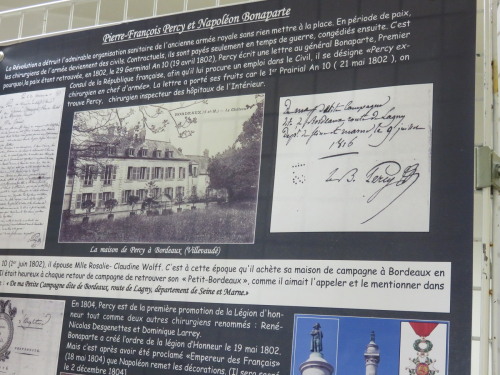 Pierre-François Percy et Napoléon Bonaparte
La Révolution a détruit l'admirable organisation sanitaire de l'ancienne armée royale sans rien mettre à la place. En période de paix,
les chirurgiens de l'armée deviennent des civils. Contractuels, ils sont payés seulement en temps de guerre, congédiés ensuite. C'est
pourquoi, la paix étant retrouvée, en 1802, le 29 Germinal An 10 (19 avril 1802), Percy écrit une lettre au général Bonaparte, Premier
Consul de la République française, afin qu'il lui procure un emploi dans le Civil, il se désigne «Percy ex-
chirurgien en chef d'armée». La lettre a porté ses fruits car le 1er Prairial An 10 ( 21 mai 1802 ), on
trouve Percy, chirurgien inspecteur des hôpitaux de l'Intérieur.
BORDEAUX
La maison de Percy à Bordeaux (Villevaudé)
De ma petite Campagne
dite de Bordeaux, route de Lagny
1816
Percy
10 (1er juin 1802), il épouse Mlle Rosalie- Claudine Wolff. C'est à cette époque qu'il achète sa maison de campagne à Bordeaux en
Il était heureux à chaque retour de campagne de retrouver son «Petit-Bordeaux», comme il aimait l'appeler et le mentionner dans
: « De ma Petite Campagne dite de Bordeaux, route de Lagny, département de Seine et Marne.»
En 1804, Percy est de la première promotion de la Légion d'hon-
neur tout comme deux autres chirurgiens renommés : René-
Nicolas Desgenettes et Dominique Larrey.
Bonaparte a créé l'ordre de la légion d'Honneur le 19 mai 1802.
Mais c'est après avoir été proclamé «Empereur des Français»
(18 mai 1804) que Napoléon remet les décorations. (Il sera sacré
le 2 décembre 1804)